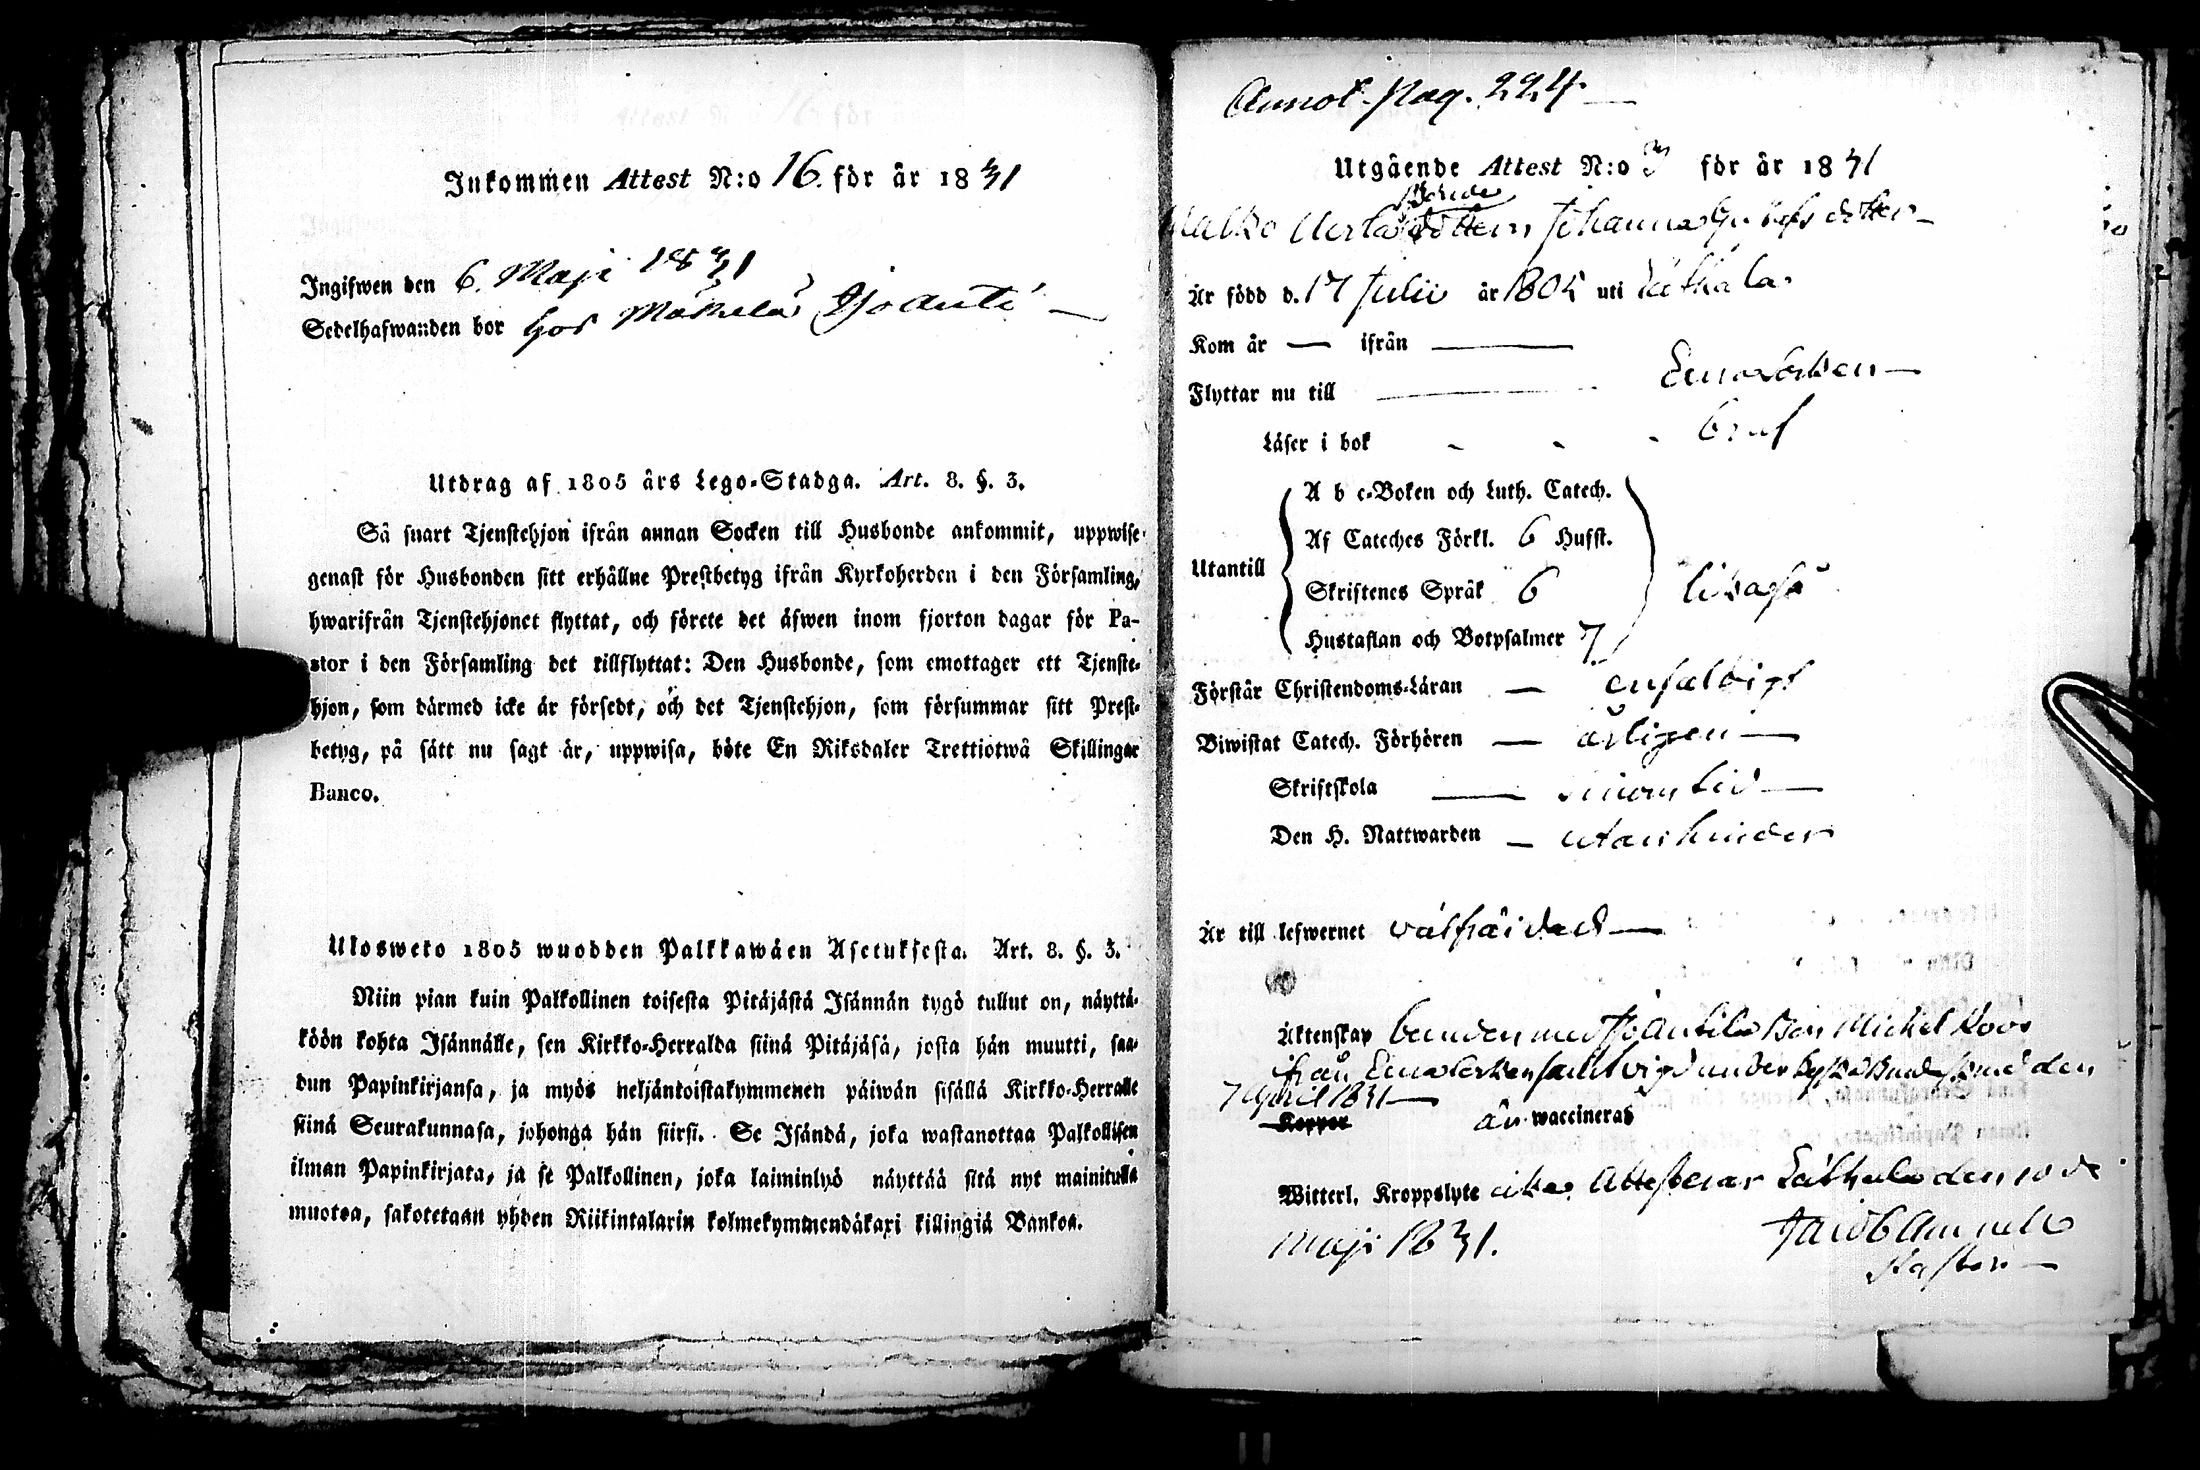 Inkommen Attest N:o 16. för år 1831
Ingifwen den 6. Maji 1831
Sedelhafwanden bor hos
Utdrag af 1805 års Lego-Stadga. Art. 8. §. 3.
Så snart Tjenstehjon ifrån annan Socken till Husbonde ankommit, uppwise
genast för Husbonden sitt erhållne Prestbetyg ifrån Kyrkoherden i den Församling,
hwarifrån Tjenstehjonet flyttat, och förete det äfwen inom fjorton dagar för Pa-
stor i den Församling det tillflyttat: Den Husbonde, som emottager ett Tjenste-
hjon, som därmed icke är försedt, och det Tjenstehjon, som försummar sitt Prest-
betyg, på sätt nu sagt är, uppwisa, böte En Riksdaler Trettiotwå Skillingar
Banco.
Ulosweto 1805 wuodden Palkkawäen Asetuksesta. Art. 8. §. 3.
Niin pian kuin Palkollinen toisesta Pitäjästä Isännän tygö tullut on, näyttä-
köön kohta Isännälle, sen Kirkko-Herralda siinä Pitäjäsä, josta hän muutti, saa-
dun Papinkirjansa, ja myös neljäntoistakymmenen päiwän sisällä Kirkko-Herralle
siinä Seurakunnasa, johonga hän siirsi. Se Isändä, joka wastanottaa Palkollisen
ilman Papinkirjata, ja se Palkollinen, joka laiminlyö näyttää sitä nyt mainitulla
muotoa, sakotetaan yhden Riikintalarin kolmekymmendäkaxi killingiä Bankoa.
Annot. pag. 224
Utgående Attest N:o 3 för år 1831
Johanna Gustafsdotter
Är född d. 17 Julii år 1805 uti Lethala
Kom år — ifrån —
Flyttar nu till Eura Socken
Läser i bok - - - braf
A b c-Boken och Luth. Catech.
Af Cateches Förkl. 6 Hufst.
Utantill
Skriftenes Språk 6
likaså
Hustaflan och Botpsalmer 7.
Förstår Christendoms-Läran — enfaldigt
Biwistat Catech. Förhören — årligen
Skriftskola — inom tid
Den H. Nattwarden — utan hinder
Är till lefwernet välfräjdad
Äktenskap bunden med Michel
ifrån Eura Socken samt vigd under den
7 April 1831
Koppor än waccinerad
Witterl. Kroppslyte icke. Attesterar den 10 de
Maji 1831.
Pastor